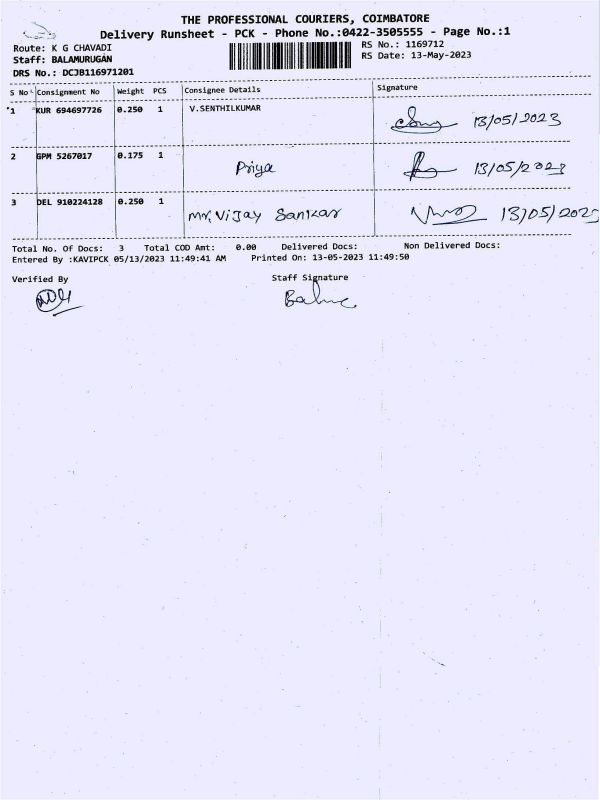 THE PROFESSIONAL COURIERS, COIMBATORE
Delivery Runsheet - PCK - Phone No.:0422-3505555 - Page No.:1
Route: K G CHAVADI RS No.: 1169712
Staff: BALAMURUGAN RS Date: 13-May-2023
DRS No.: DCJB116971201
S No Consignment No Weight PCS Consignee Details Signature
1 KUR 694697726 0.250 1 V.SENTHILKUMAR 13/05/2023
2 GPM 5267017 0.175 1 Priya 13/05/2023
3 DEL 910224128 0.250 1 Mr. Vijay Sankar 13/05/2023
Total No. Of Docs: 3 Total COD Amt: 0.00 Delivered Docs: Non Delivered Docs:
Entered By :KAVIPCK 05/13/2023 11:49:41 AM Printed On: 13-05-2023 11:49:50
Verified By Staff Signature